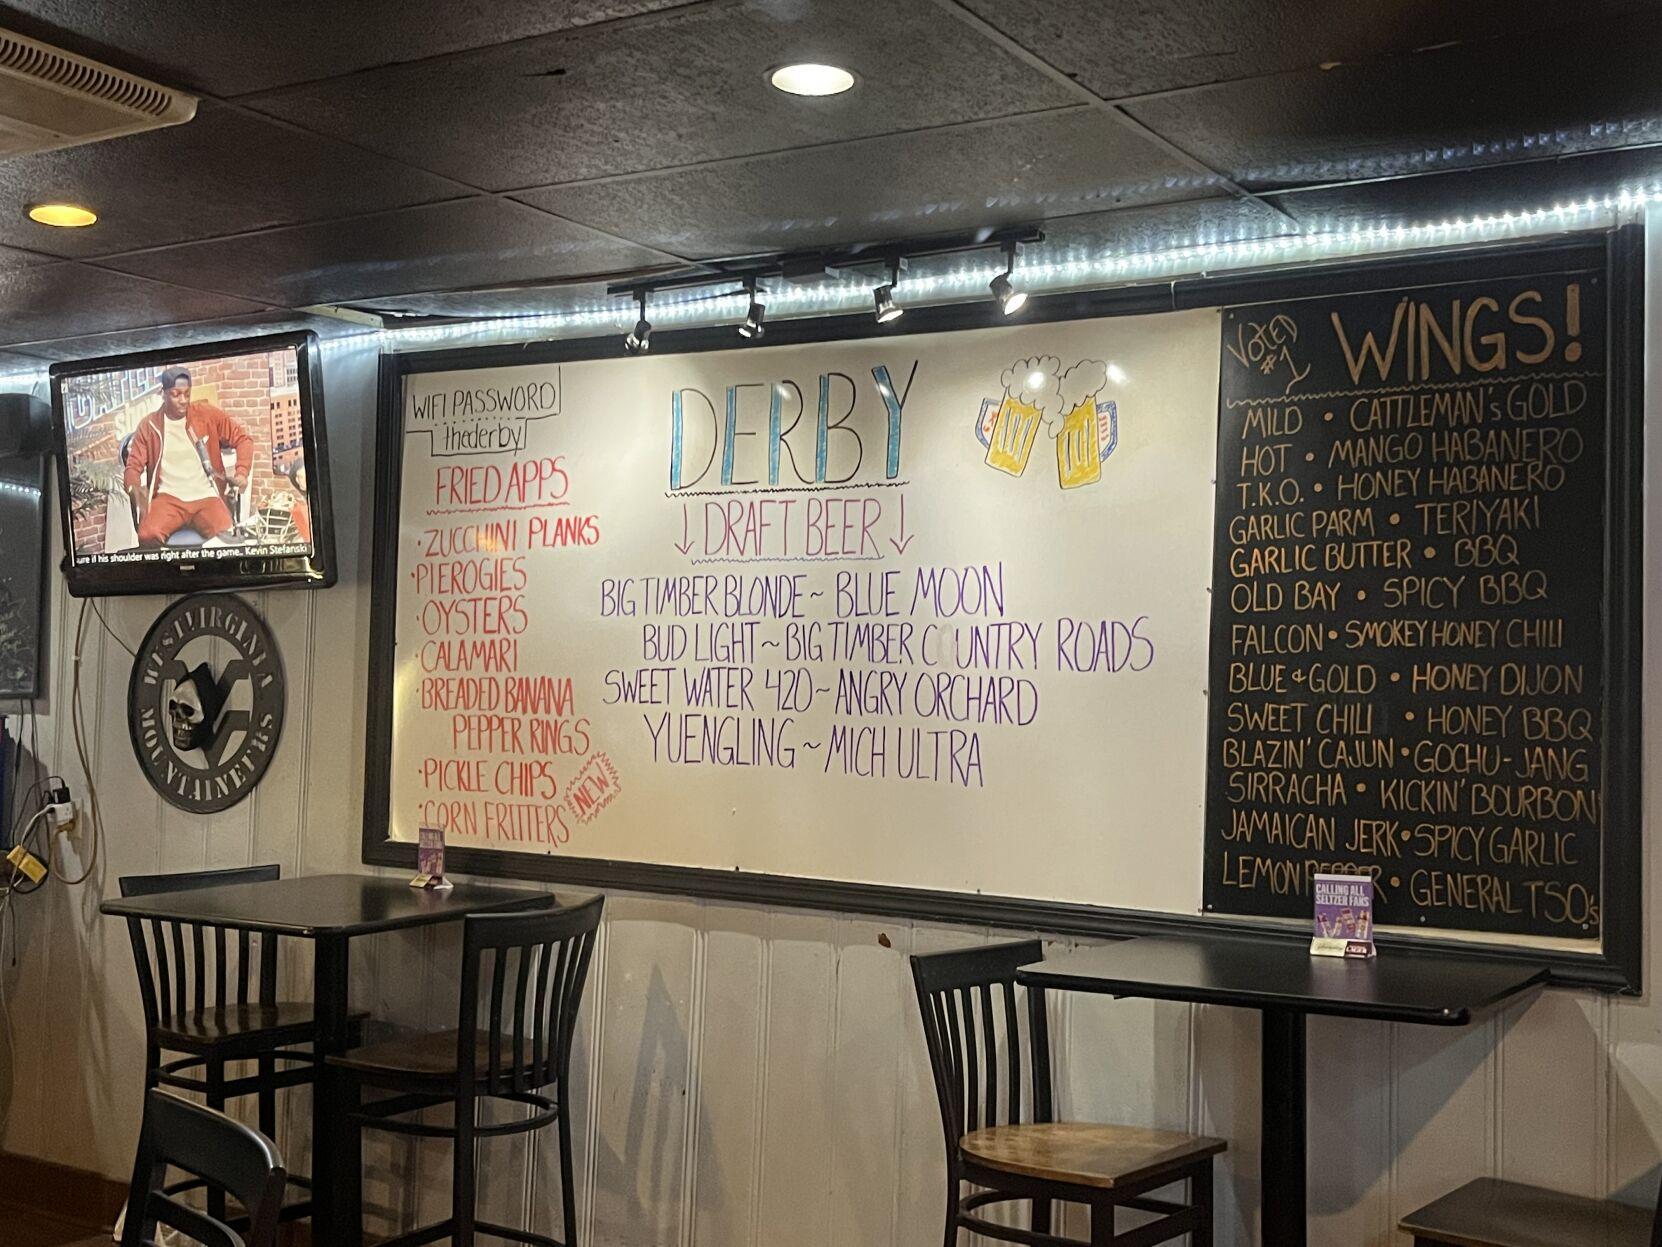 WIFI PASSWORD
thederby
FRIED APPS
• ZUCCHINI PLANKS
• PIEROGIES
• OYSTERS
• CALAMARI
• BREADED BANANA
PEPPER RINGS
• PICKLE CHIPS
NEW
• CORN FRITTERS
DERBY
↓ DRAFT BEER ↓
BIG TIMBER BLONDE ~ BLUE MOON
BUD LIGHT ~ BIG TIMBER C UNTRY ROADS
SWEET WATER 420 ~ ANGRY ORCHARD
YUENGLING ~ MICH ULTRA
VOTED
#1
WINGS!
MILD • CATTLEMAN's GOLD
HOT • MANGO HABANERO
T.K.O. • HONEY HABANERO
GARLIC PARM • TERIYAKI
GARLIC BUTTER • BBQ
OLD BAY • SPICY BBQ
FALCON • SMOKEY HONEY CHILI
BLUE & GOLD • HONEY DIJON
SWEET CHILI • HONEY BBQ
BLAZIN' CAJUN • GOCHU-JANG
SIRRACHA • KICKIN' BOURBON
JAMAICAN JERK • SPICY GARLIC
LEMON PEPPER • GENERAL TSO's
ure if his shoulder was right after the game.. Kevin Stefanski
PHILIPS
WEST VIRGINIA
MOUNTAINEERS
CALLING ALL
SELTZER FANS
CALLING ALL
SELTZER FANS